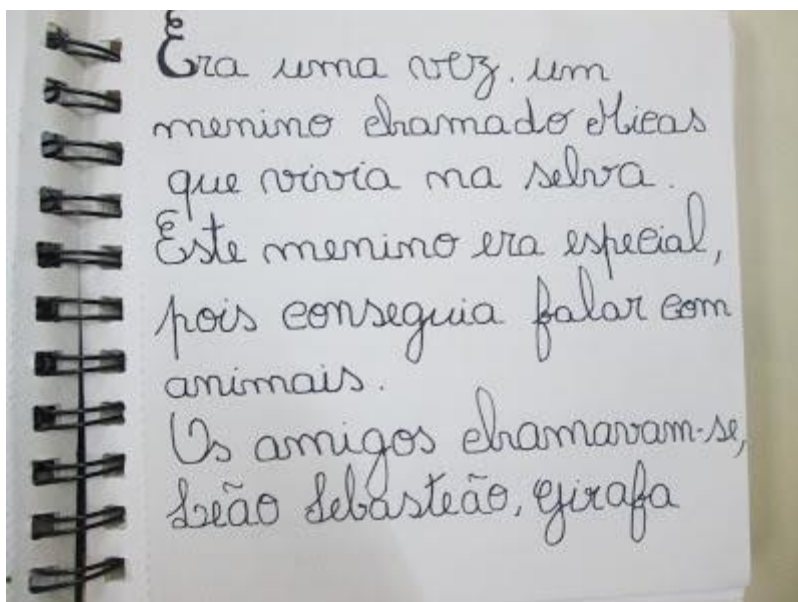 Era uma vez. um
menino chamado Micas
que vivia na selva.
Este menino era especial,
pois conseguia falar com
animais.
Os amigos chamavam-se,
Leão Sebasteão, Girafa